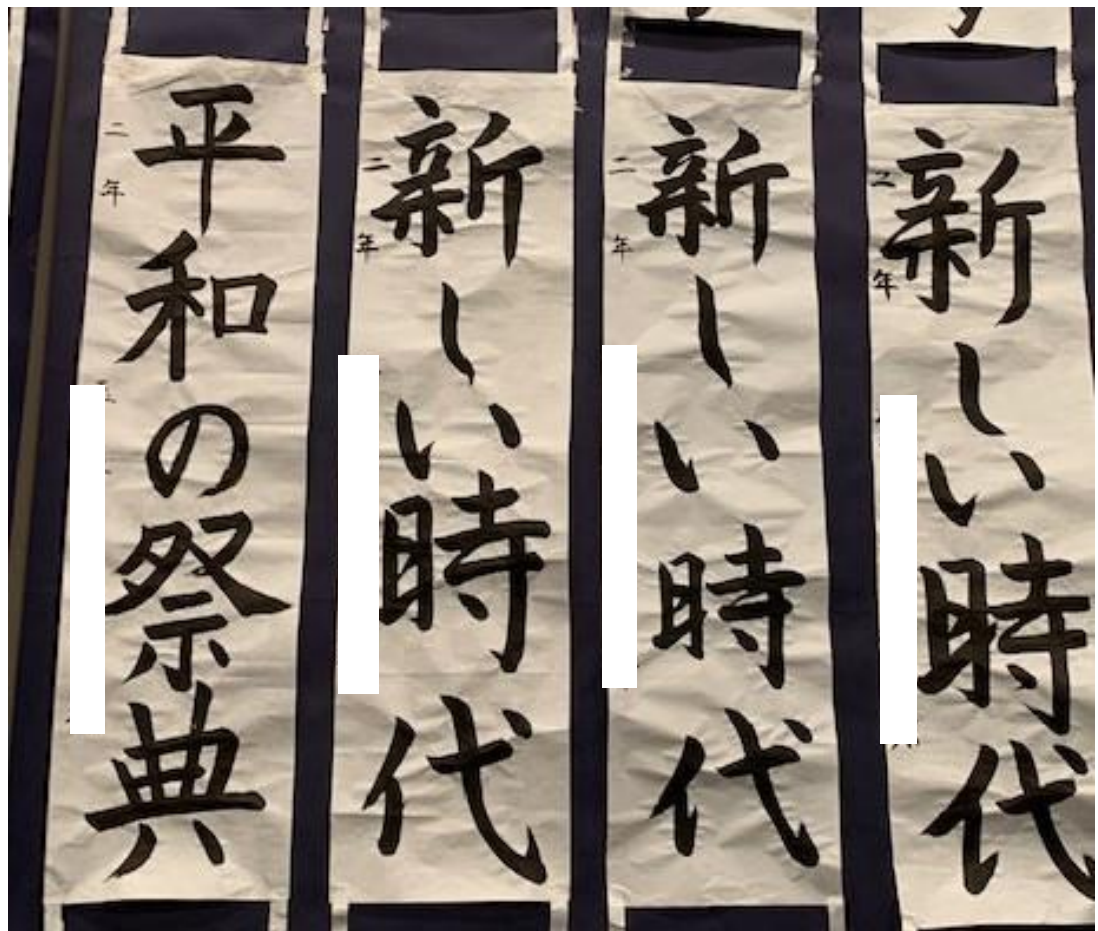 新しい時代
二年
新しい時代
二年
新しい時代
二年
平和の祭典
二年